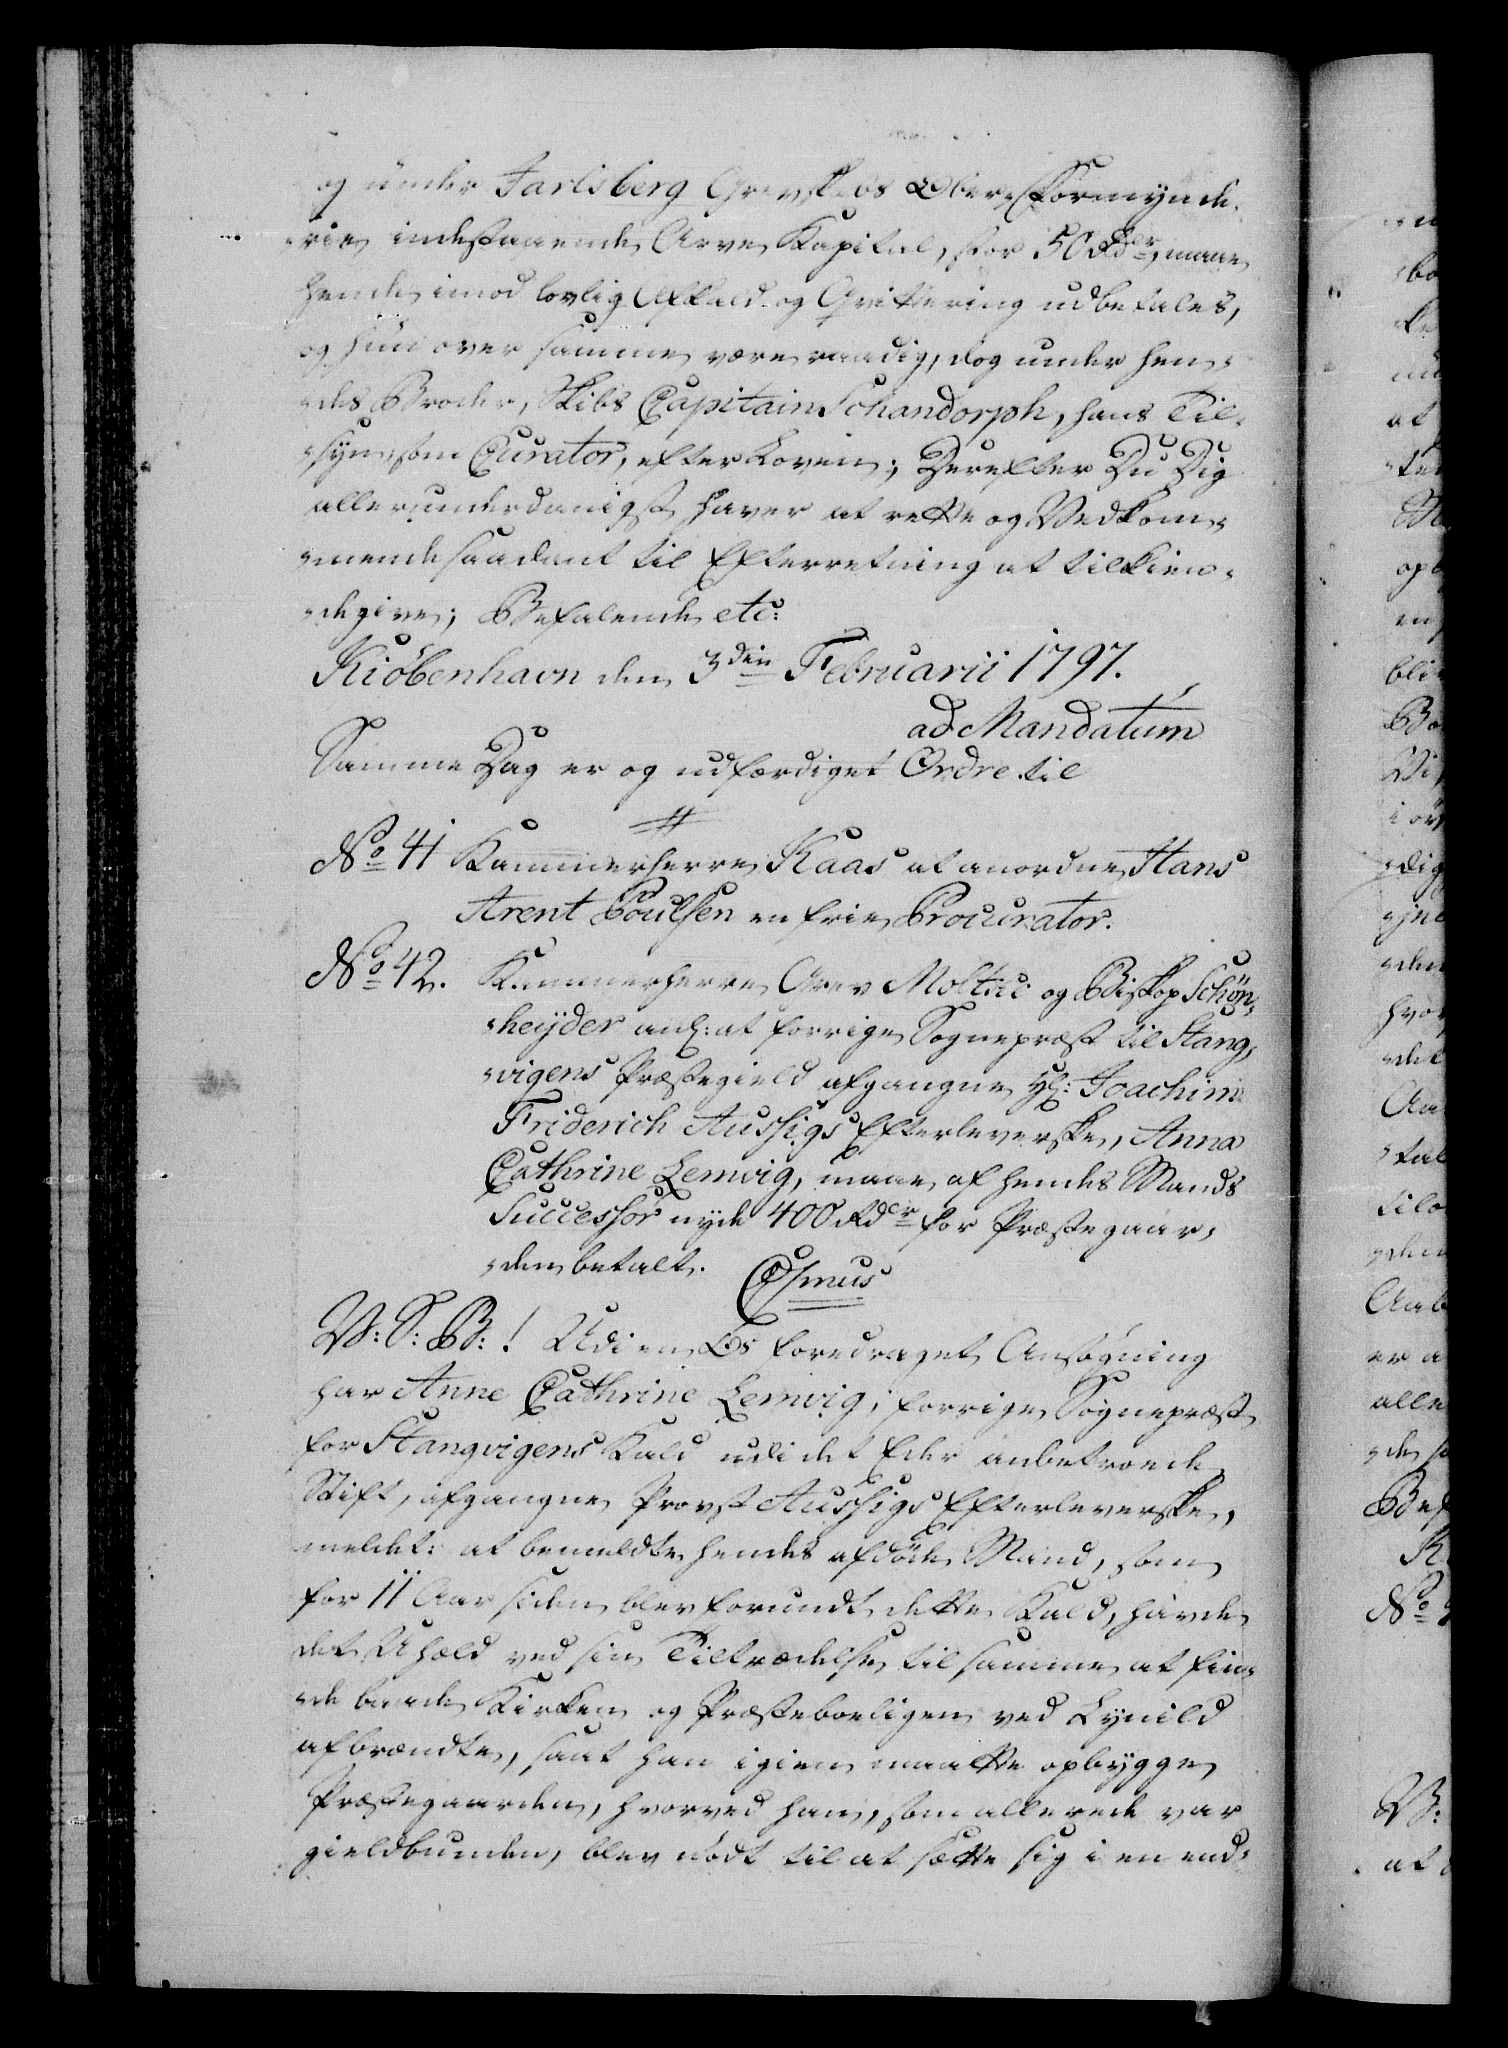 og under Jarlsberg Grevskabs Overformynde-
-rie indestaaende Arve Kapital, stor 50 Rdlr, maae
hende imod lovlig Afkald og Qvittering udbetales,
og hun over samme være raadig, dog under hen-
-des Broder, Skibs Capitain Schandorph, hans Til-
-syn som Curator, efter Loven; Derefter Du Dig
allerunderdanigst haver at rette og Vedkom-
-mende saadant til Efterretning at tilkien-
-degive; Befalende etc:
Kiöbenhavn den 3die Februarii 1797.
ad Mandatum
Samme Dag er og udfærdiget Ordre til
No 41 Kammerherre Kaas at anordne Hans
Arent Poulsen en frie Procurator.
No 42. Kammerherre Grev Moltke og Biskop Schön-
-heyder anl: at forrige Sognepræst til Stang-
-vigens Præstegield afgangne Hr: Joachim
Friderich Aussigs Efterleverske, Anna
Cathrine Lemvig, maae af hendes Mands
Successor nyde 400 Rdlr for Præstegaar-
-den betalt.
V: S: B: ! Udi en Os foredraget Ansøgning
har Anne Cathrine Lemvig, forrige Sognepræst
for Stangvigens Kald udi det Eder anbetroede
Stift, afgangne Provst Aussigs Efterleverske,
meldet: at bemeldte hendes afdöde Mand, som
for 11 Aar siden blev forundt dette Kald, havde
det Uheld ved sin Tiltrædelse til samme at fin-
-de baade Kirken og Præsteboeligen ved Lynild
afbrændte, saat han igien maatte opbygge
Præstegaarden, hvorved han, som allerede var
gieldbunden, blev nödt til at sætte sig i en end-